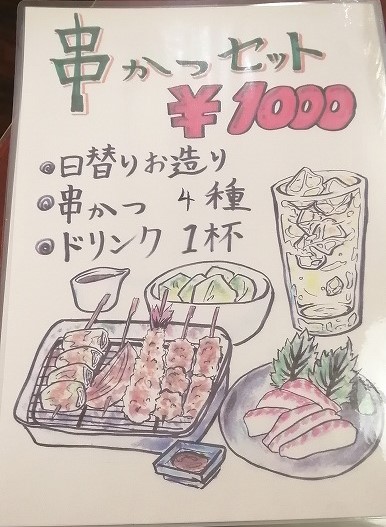 串かつセット
¥1000
日替りお造り
串かつ 4種
ドリンク 1杯